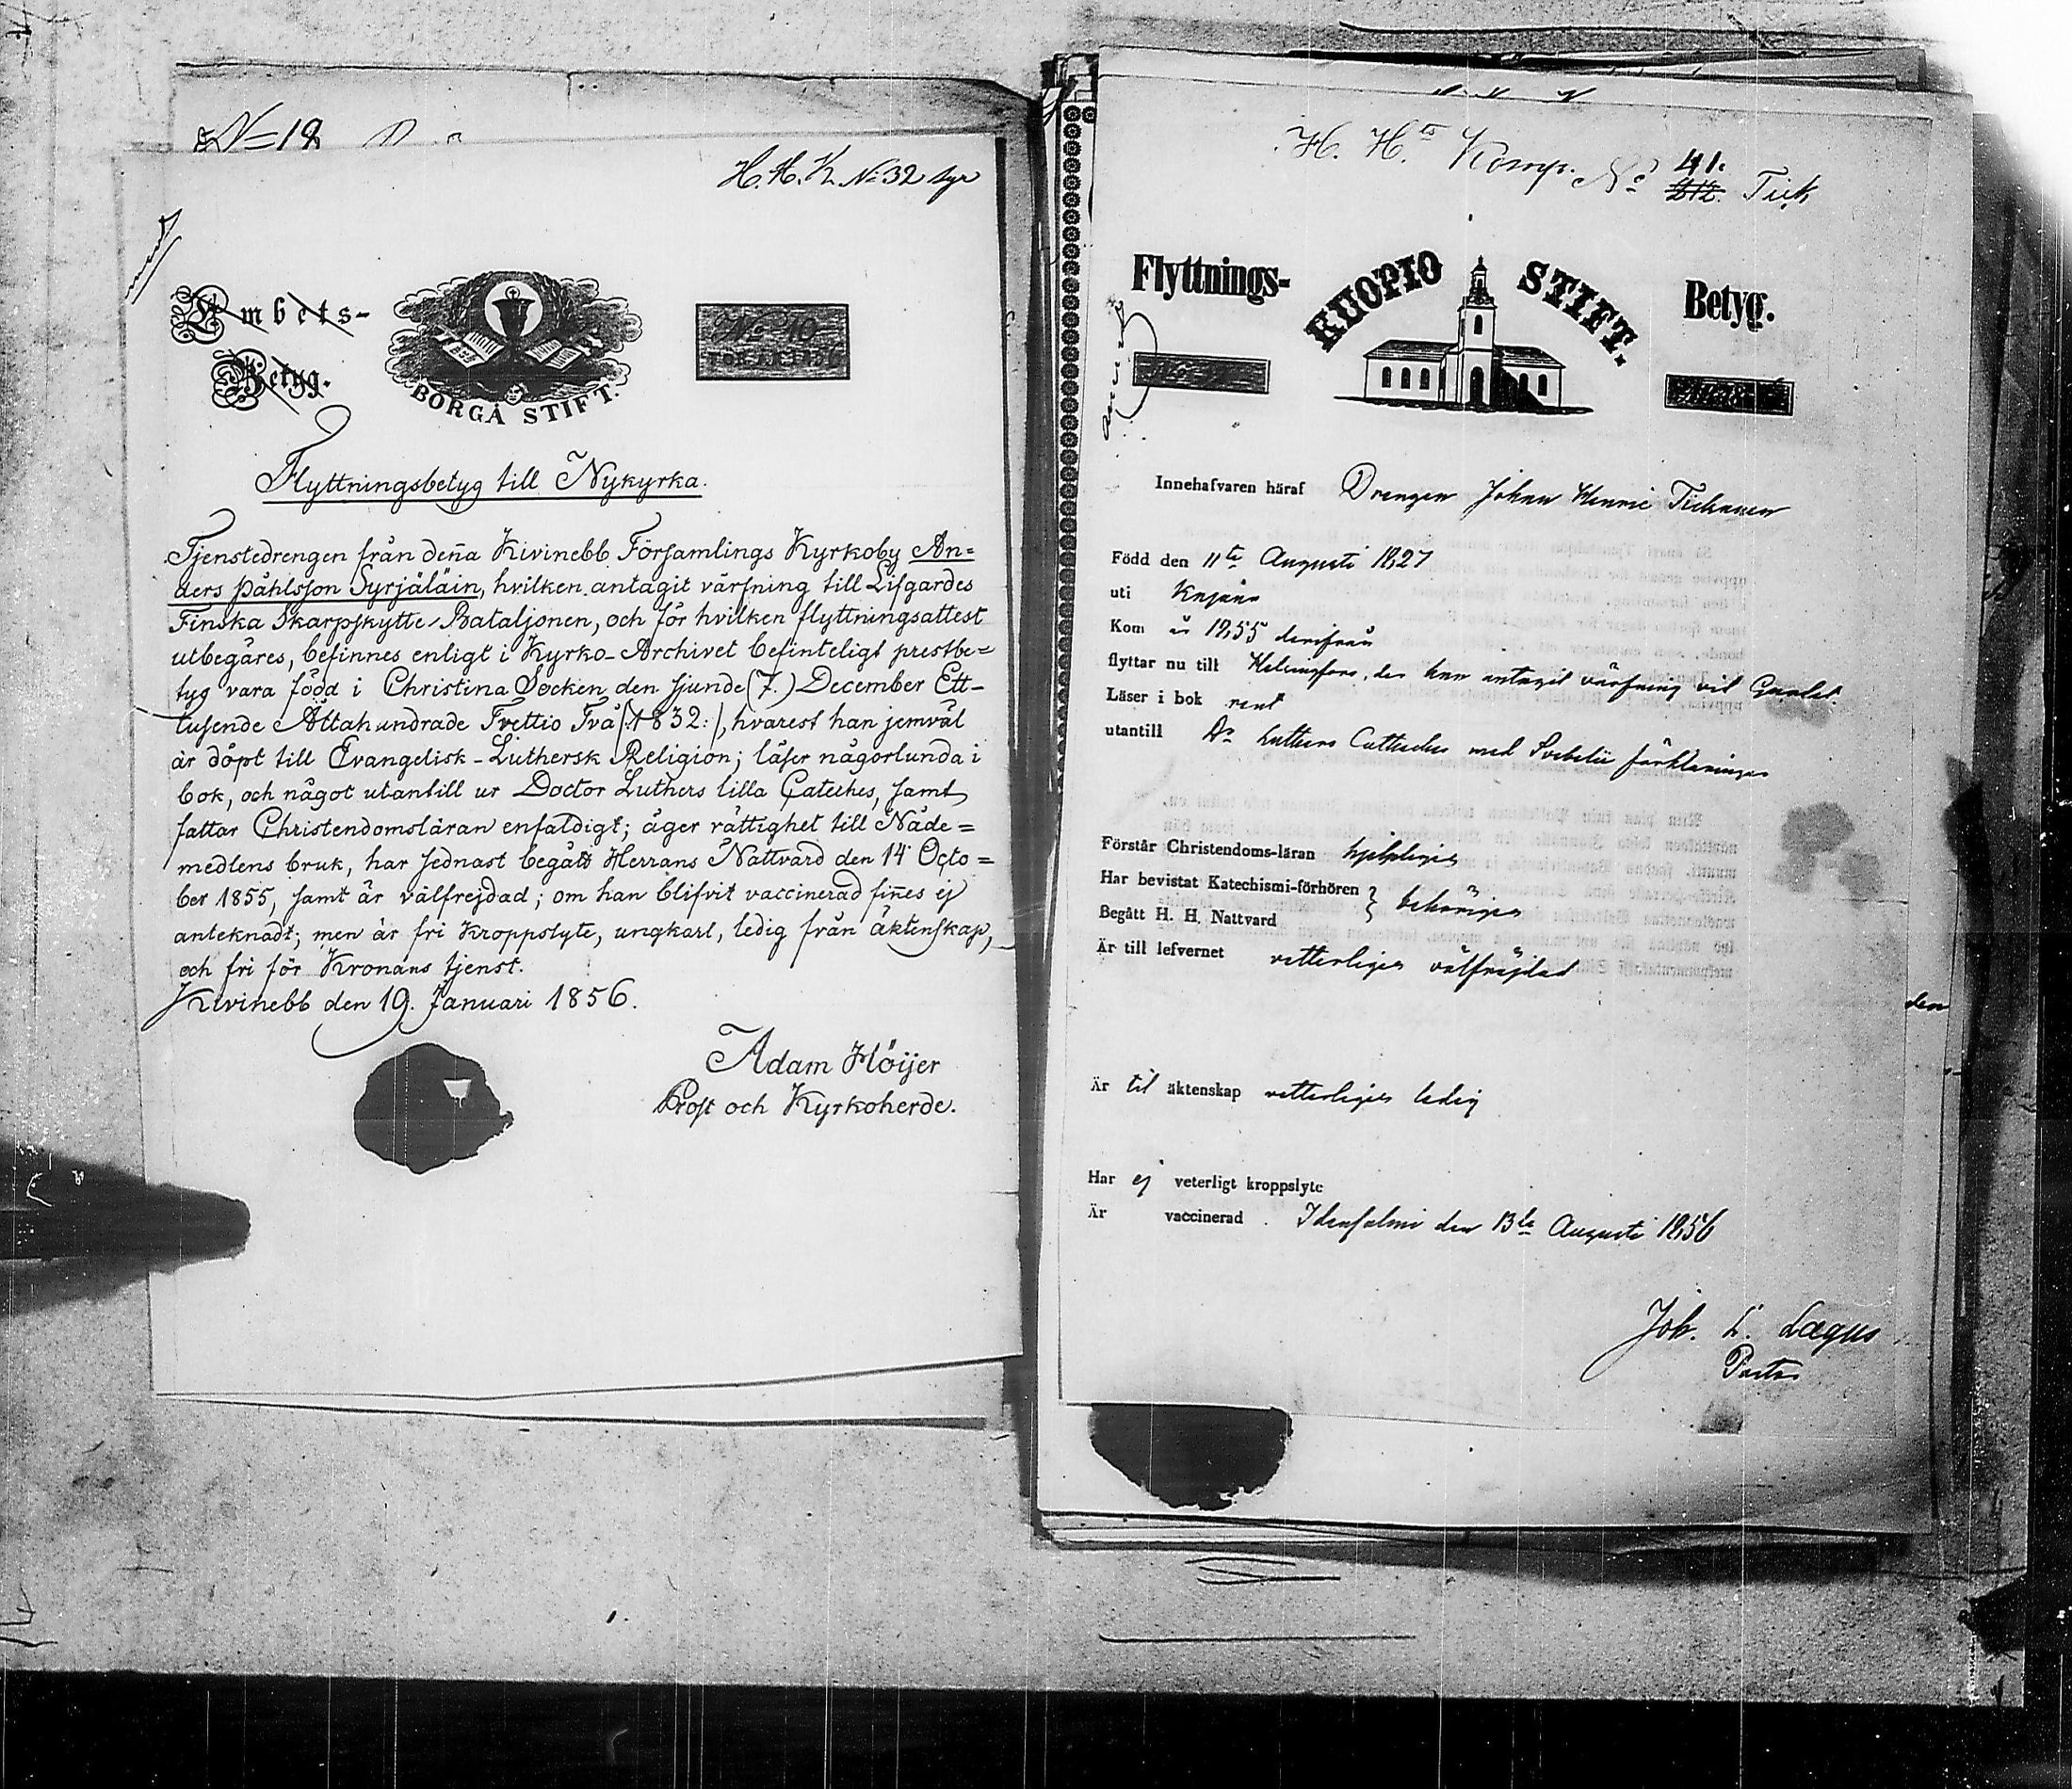 N=18
H. H. K. No 32 Syr
Embets-
Betyg.
BORGÅ STIFT.
No 10
Flyttningsbetyg till Nykyrka.
Tjenstedrengen från deña Kivinebb Församlings Kyrkoby An=
ders Påhlsson Syrjäläin, hvilken antagit värfning till Lifgardes
Finska Skarpskytte-Bataljonen, och för hvilken flyttningsattest
utbegäres, befinnes enligt i Kyrko-Archivet befinteligt prestbe=
tyg vara född i Christina Socken den sjunde (7.) December Ett-
tusende Åttahundrade Trettio Två /:1832:/, hvarest han jemväl
är döpt till Evangelisk-Luthersk Religion; läser någorlunda i
bok, och något utantill ur Doctor Luthers lilla Cateches, samt
fattar Christendomsläran enfaldigt; äger rättighet till Nåde=
medlens bruk, har sednast begått Herrans Nattvard den 14 Octo=
ber 1855, samt är välfrejdad; om han blifvit vaccinerad fiñes ej
antecknadt; men är fri Kroppslyte, ungkarl, ledig från äktenskap,
och fri för Kronans tjenst.
Kivinebb den 19. Januari 1856.
Adam Höijer
Prost och Kyrkoherde.
H. H.ts Komp. No 41. Tick
Flyttnings- KUOPIO STIFT. Betyg.
Innehafvaren häraf Drengen Johan Henric Tickanen
Född den 11te Augusti 1827
uti Kajana
Kom år 1855 derifrån
flyttar nu till Helsingfors, der han antagit värfning vid Gardet.
Läser i bok rent
utantill Dr Luthers Cateches med Svebelii förklaringar
Förstår Christendoms-läran hjelpligen
Har bevistat Katechismi-förhören } behörigen
Begått H. H. Nattvard
Är till lefvernet vetterligen välfrejdad
Är til äktenskap vetterligen ledig
Har ej veterligt kroppslyte
Är vaccinerad. Idensalmi den 13de Augusti 1856
Joh. L. Lagus
Pastor
den